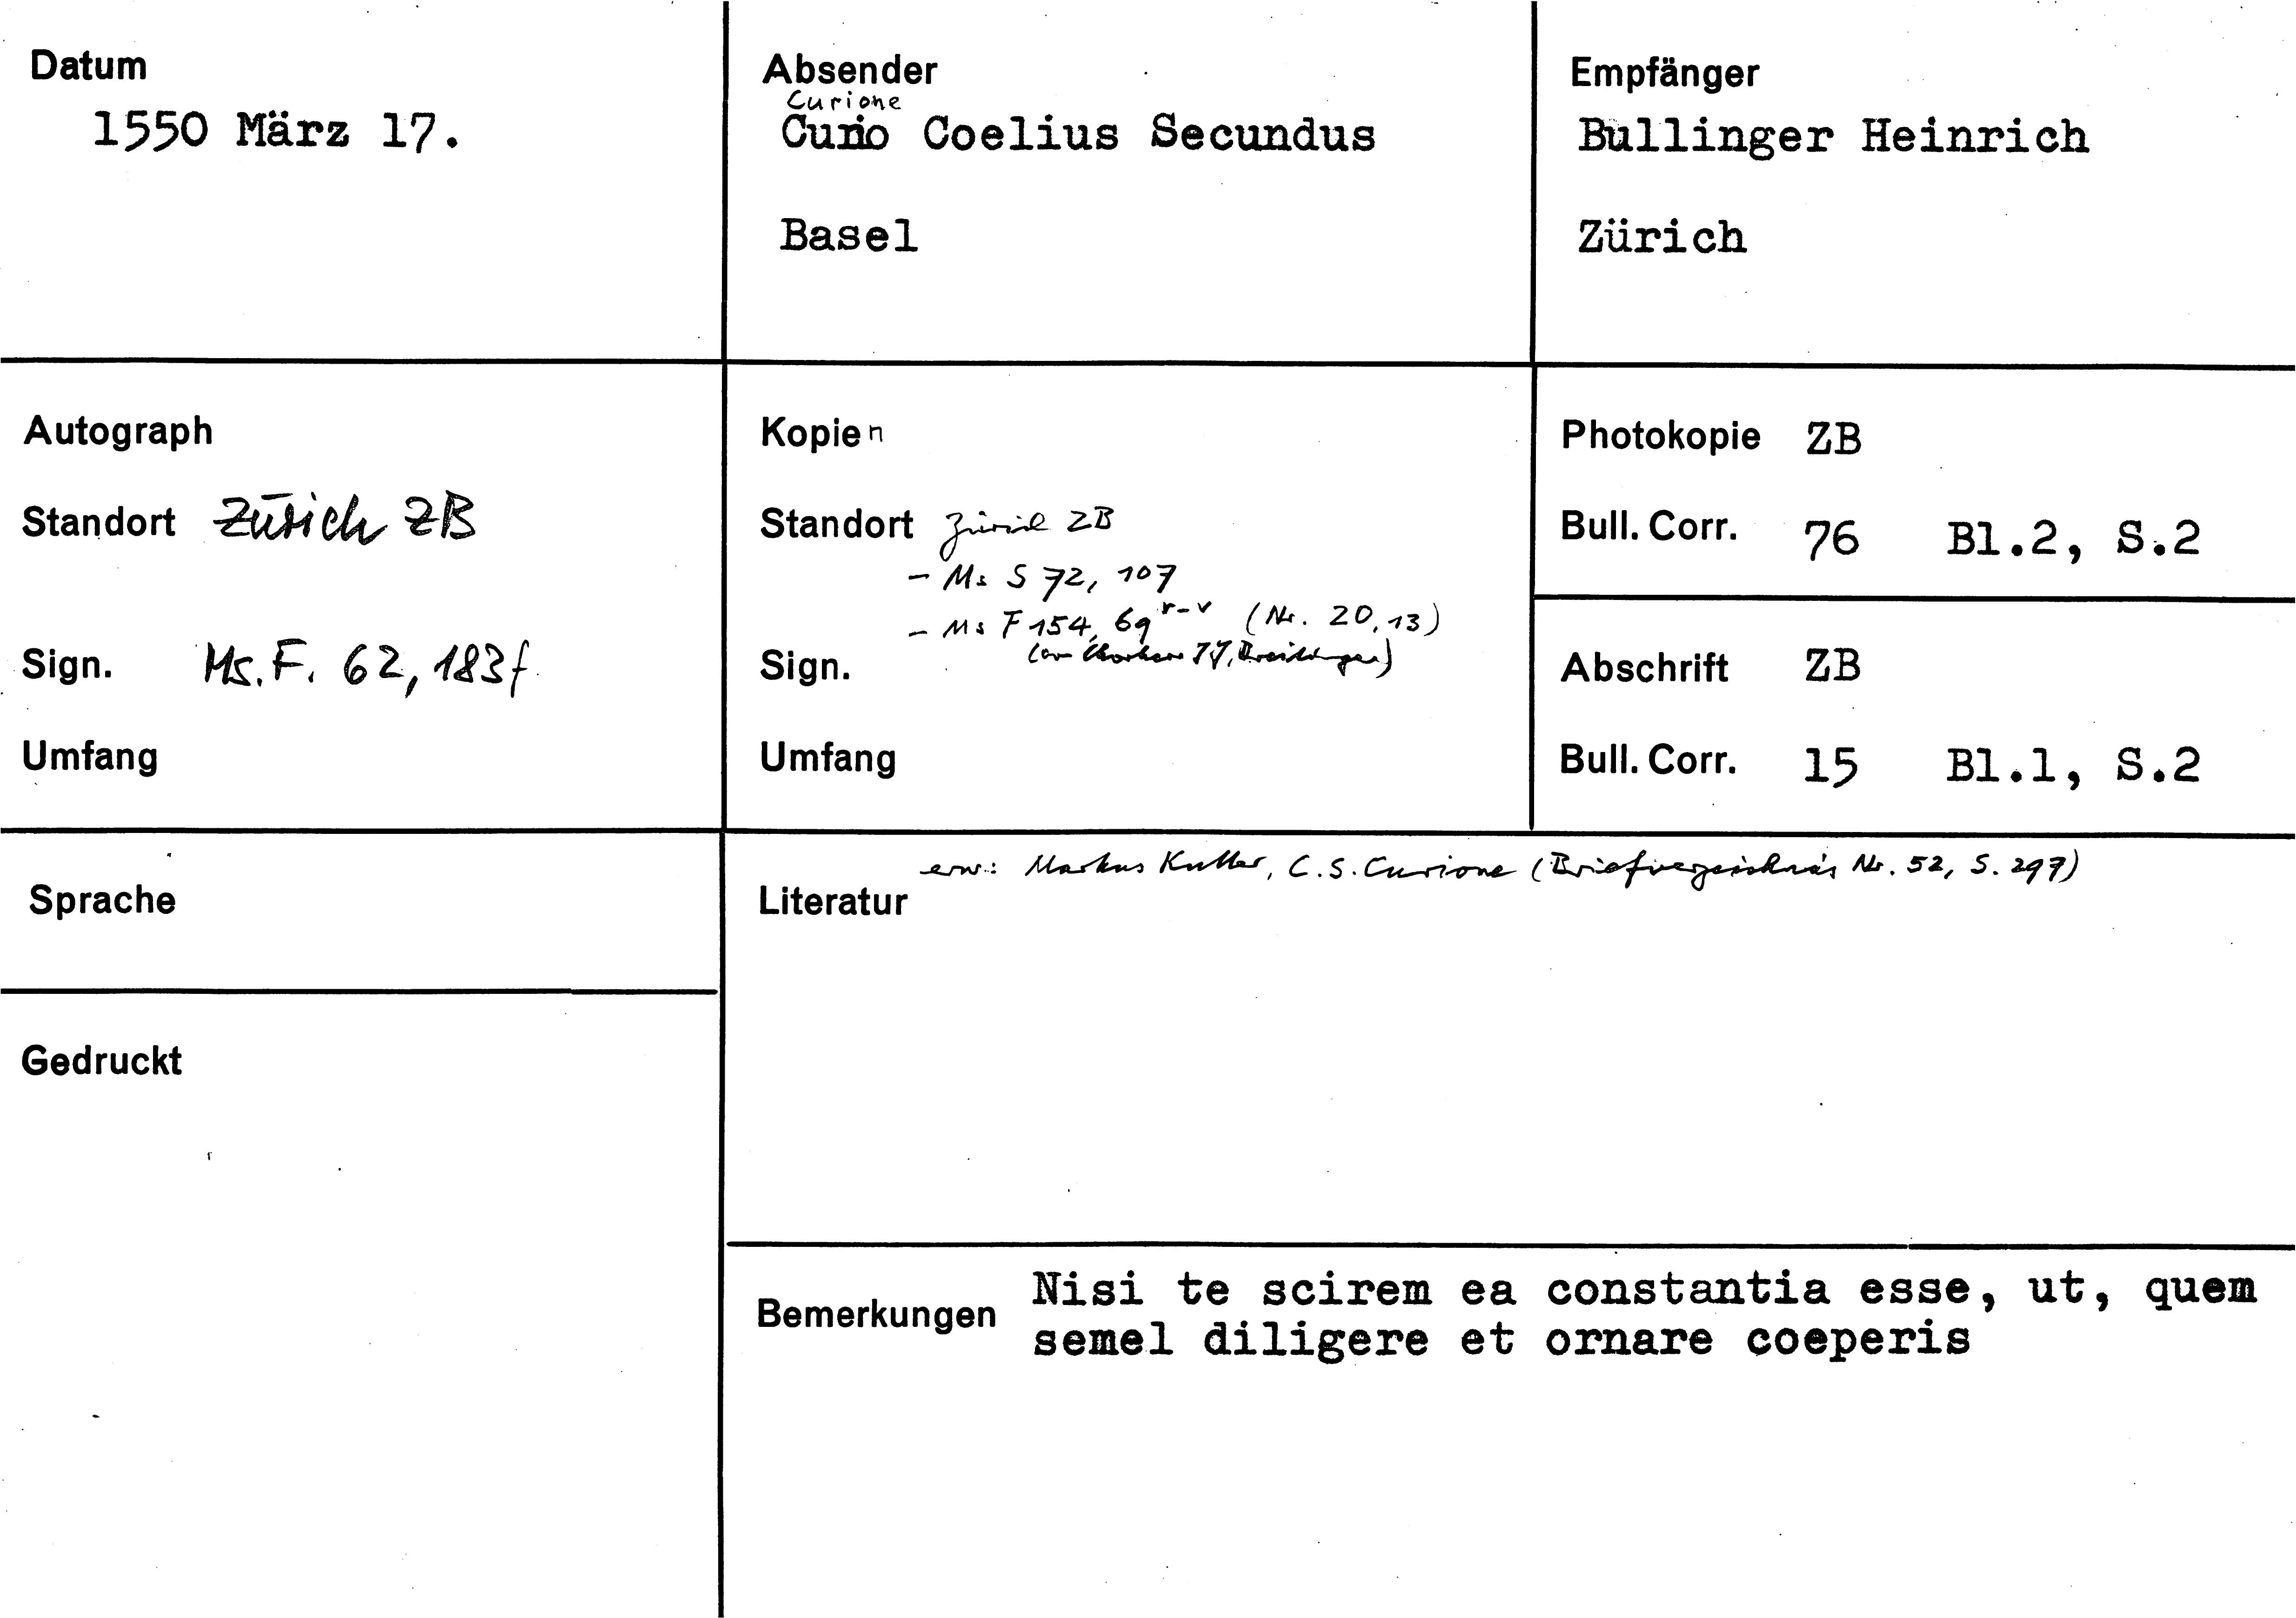 Datum
1550 März 17.
Absender
Curione
Curio Coelius Secundus
Basel
Empfänger
Bullinger Heinrich
Zürich
Autograph
Standort Zürich ZB
Sign. Ms. F. 62, 183f
Umfang
Kopien
Standort Zürich ZB
- Ms S 72, 107
- Ms F 154, 69 r-v (Nr. 20,13)
J.J. Breitinger)
Sign.
Umfang
Photokopie ZB
Bull. Corr. 76 Bl.2, S.2
Abschrift ZB
Bull. Corr. 15 Bl.1, S.2
Sprache
Gedruckt
erw.: Markus Kutter, C.S. Curione (Briefverzeichnis Nr. 52, S. 297)
Literatur
Bemerkungen Nisi te scirem ea constantia esse, ut, quem
semel diligere et ornare coeperis